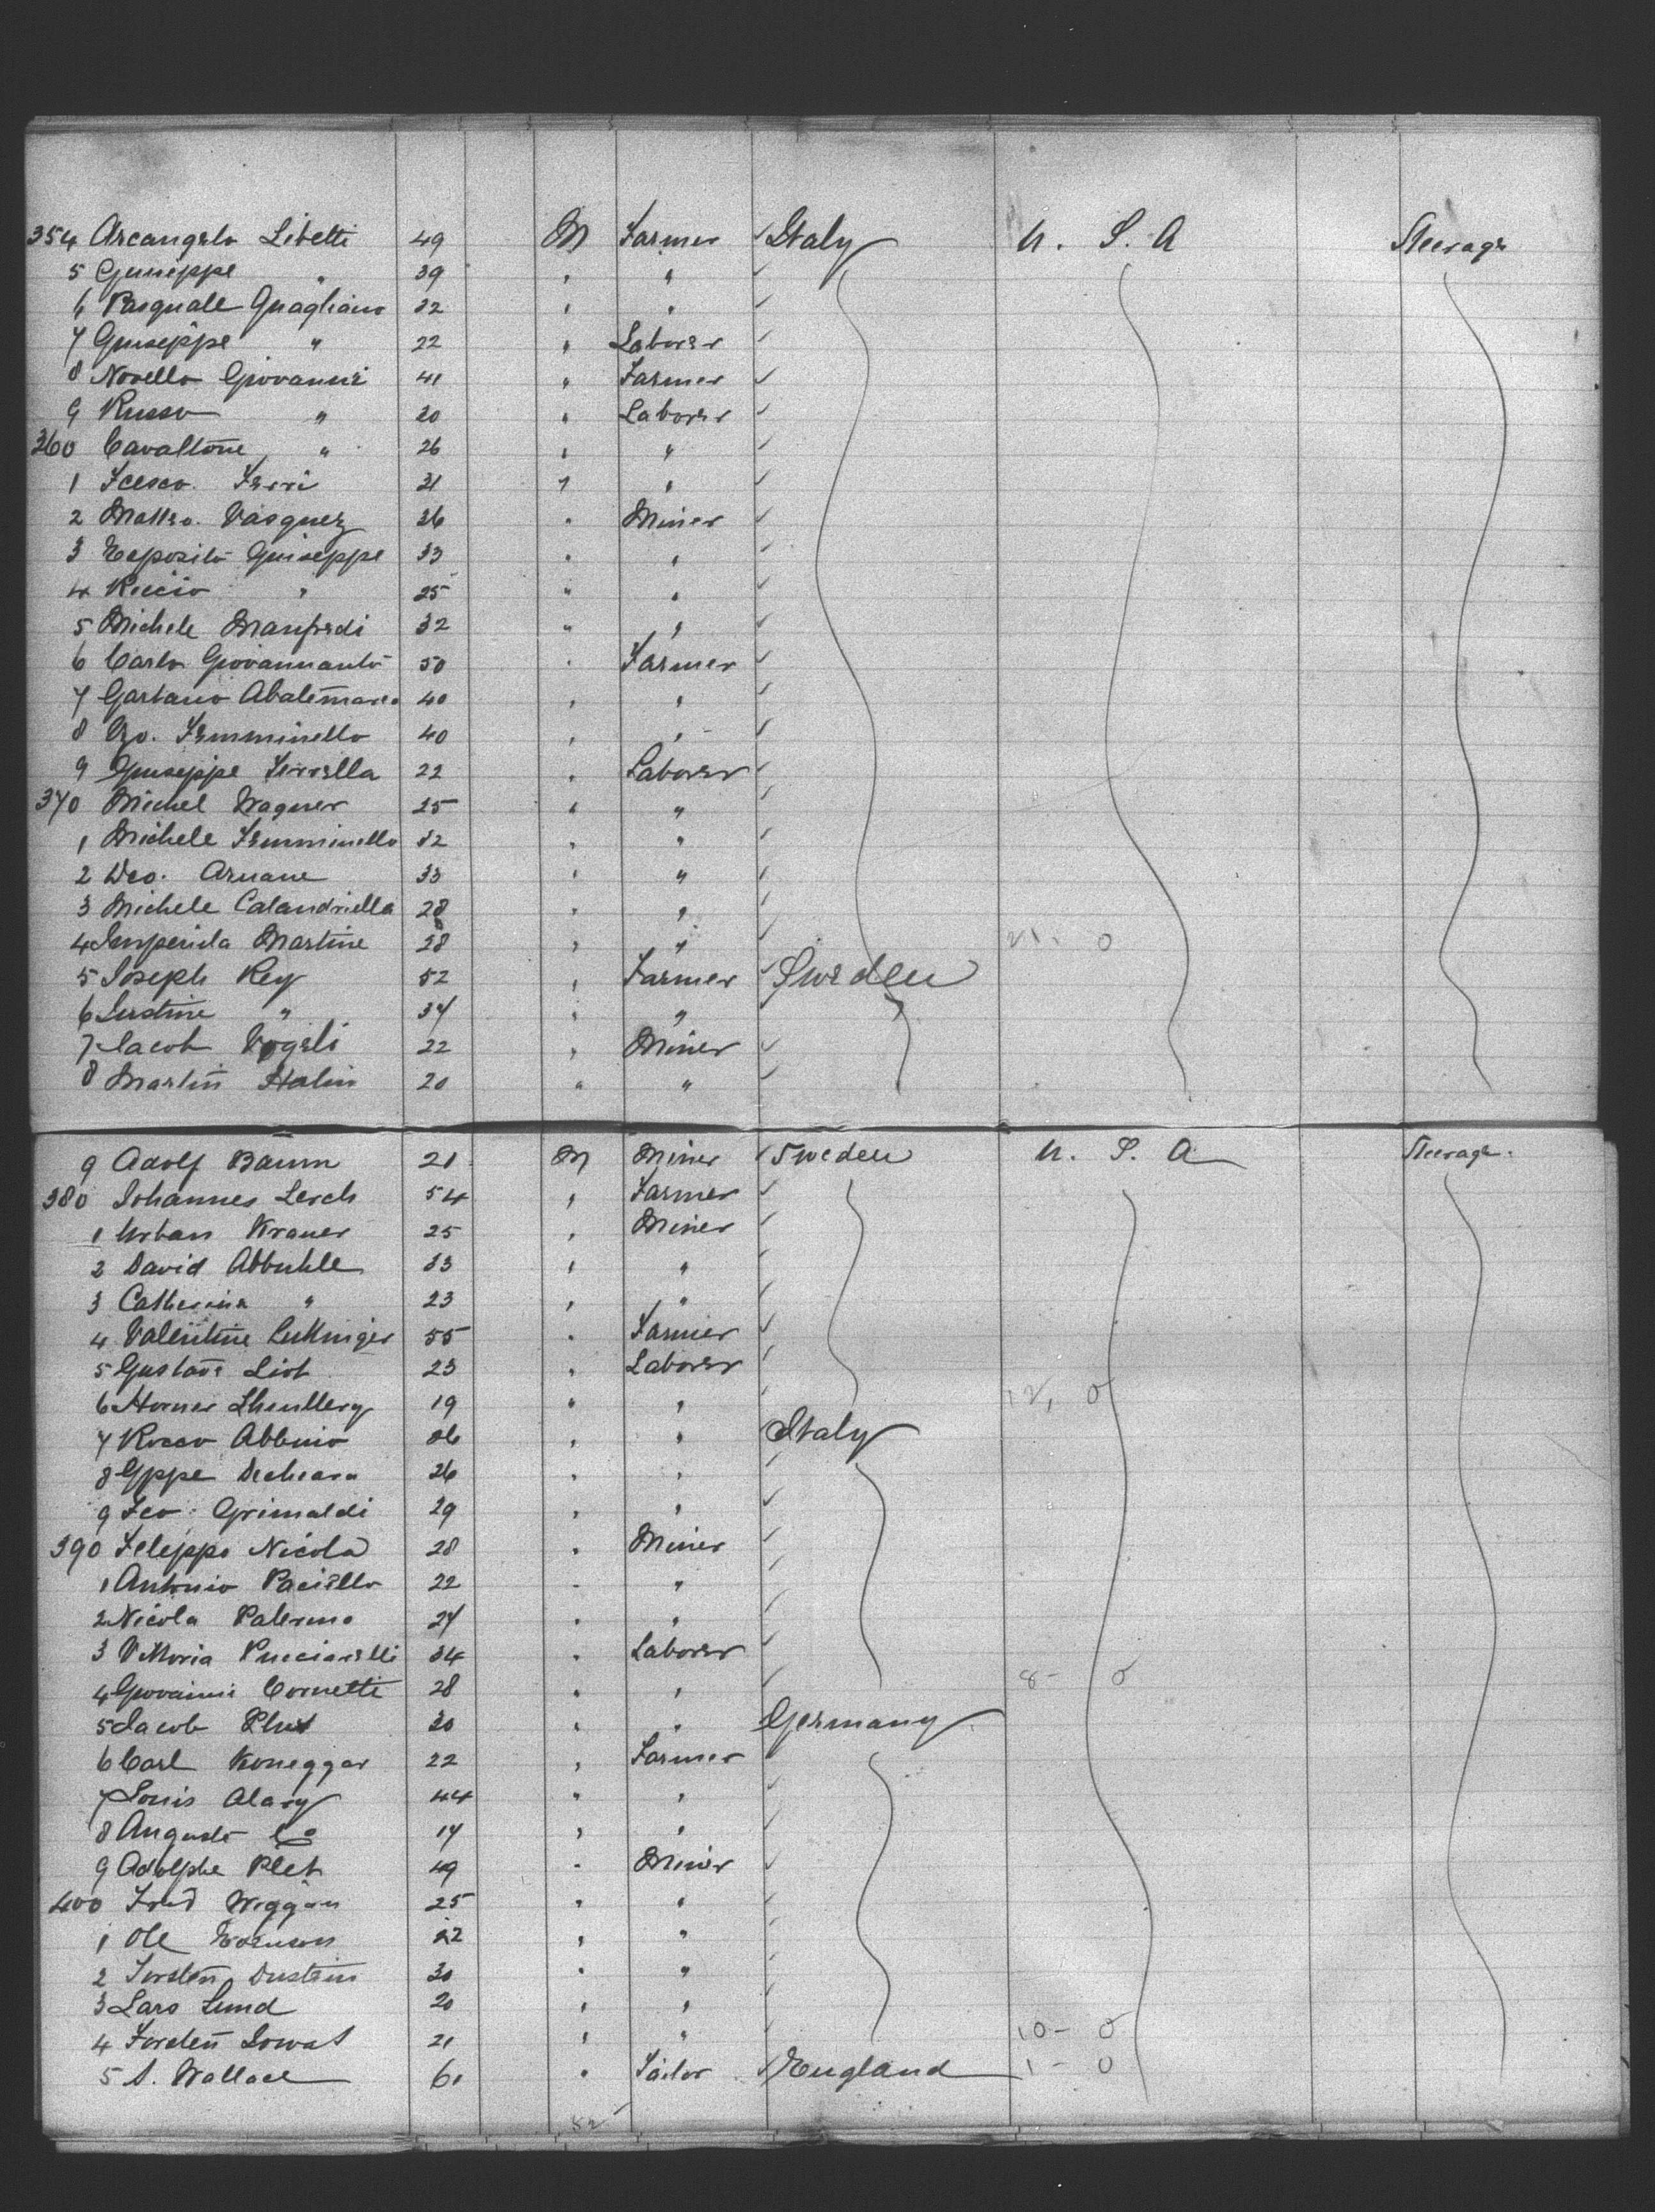 354 Arcangelo Libetti 49 M Farmer Italy U. S. A Steerage
5 Guiseppe " 39 " "
6 Pasquale Guagliano 32 " "
7 Guiseppe " 22 " Laborer
8 Novello Giovanni 41 " Farmer
9 Russo " 20 " Laborer
360 Cavallone " 26 " "
1 Fcesco. Ferri 31 " "
2 Matteo. Vasquez 36 " Miner
3 Esposito Guiseppe 33 " "
4 Riccio " 25 " "
5 Michele Manfredi 32 " "
6 Carlo Giovannanto 50 " Farmer
7 Gaetano Abatemarco 40 " "
8 Femminello 40 " "
9 Guiseppe 22 " Laborer
370 Michel Wagner 25 " "
1 Michele Femminello 32 " "
2 33 " "
3 Michele Calandriella 28 " "
4 Martine 28 " " 21. 0
5 Joseph Rey 52 " Farmer Sweden
6 Justine " 34 " "
7 Jacob Vogeli 22 " Miner
8 Martin Halin 20 " "
9 Adolf Baum 21 M Miner Sweden U. S. A Steerage.
380 Johannes Lerch 54 " Farmer
1 Urban Kraner 25 " Miner
2 David Abbuhle 33 " "
3 Catherina " 23 " "
4 Valentine 55 " Farmer
5 Gustave 23 " Laborer
6 19 " " 12, 0
7 Rocco Abbuio 36 " " Italy
8 Gppe Dechiara 26 " "
9 Fco. Grimaldi 29 " "
390 Felippo Nicola 28 " Miner
1 Antonio Paciello 22 " "
2 Nicola Palermo 24 " "
3 Vittoria Pucciarelli 34 " Laborer
4 Giovanni Cornetti 28 " " 8- 0
5 Jacob 30 " " Germany
6 Carl Koneggar 22 " Farmer
7 Louis Alary 44 " "
8 Auguste 14 " "
9 Adolphe Plet 49 " Miner
400 Fred Wiggan 25 " "
1 Ole Evenson 22 " "
2 Torsten 30 " "
3 Lars Lund 20 " "
4 21 " " 10- 0
5 A. Wallace 61 " Sailor England 1- 0
52